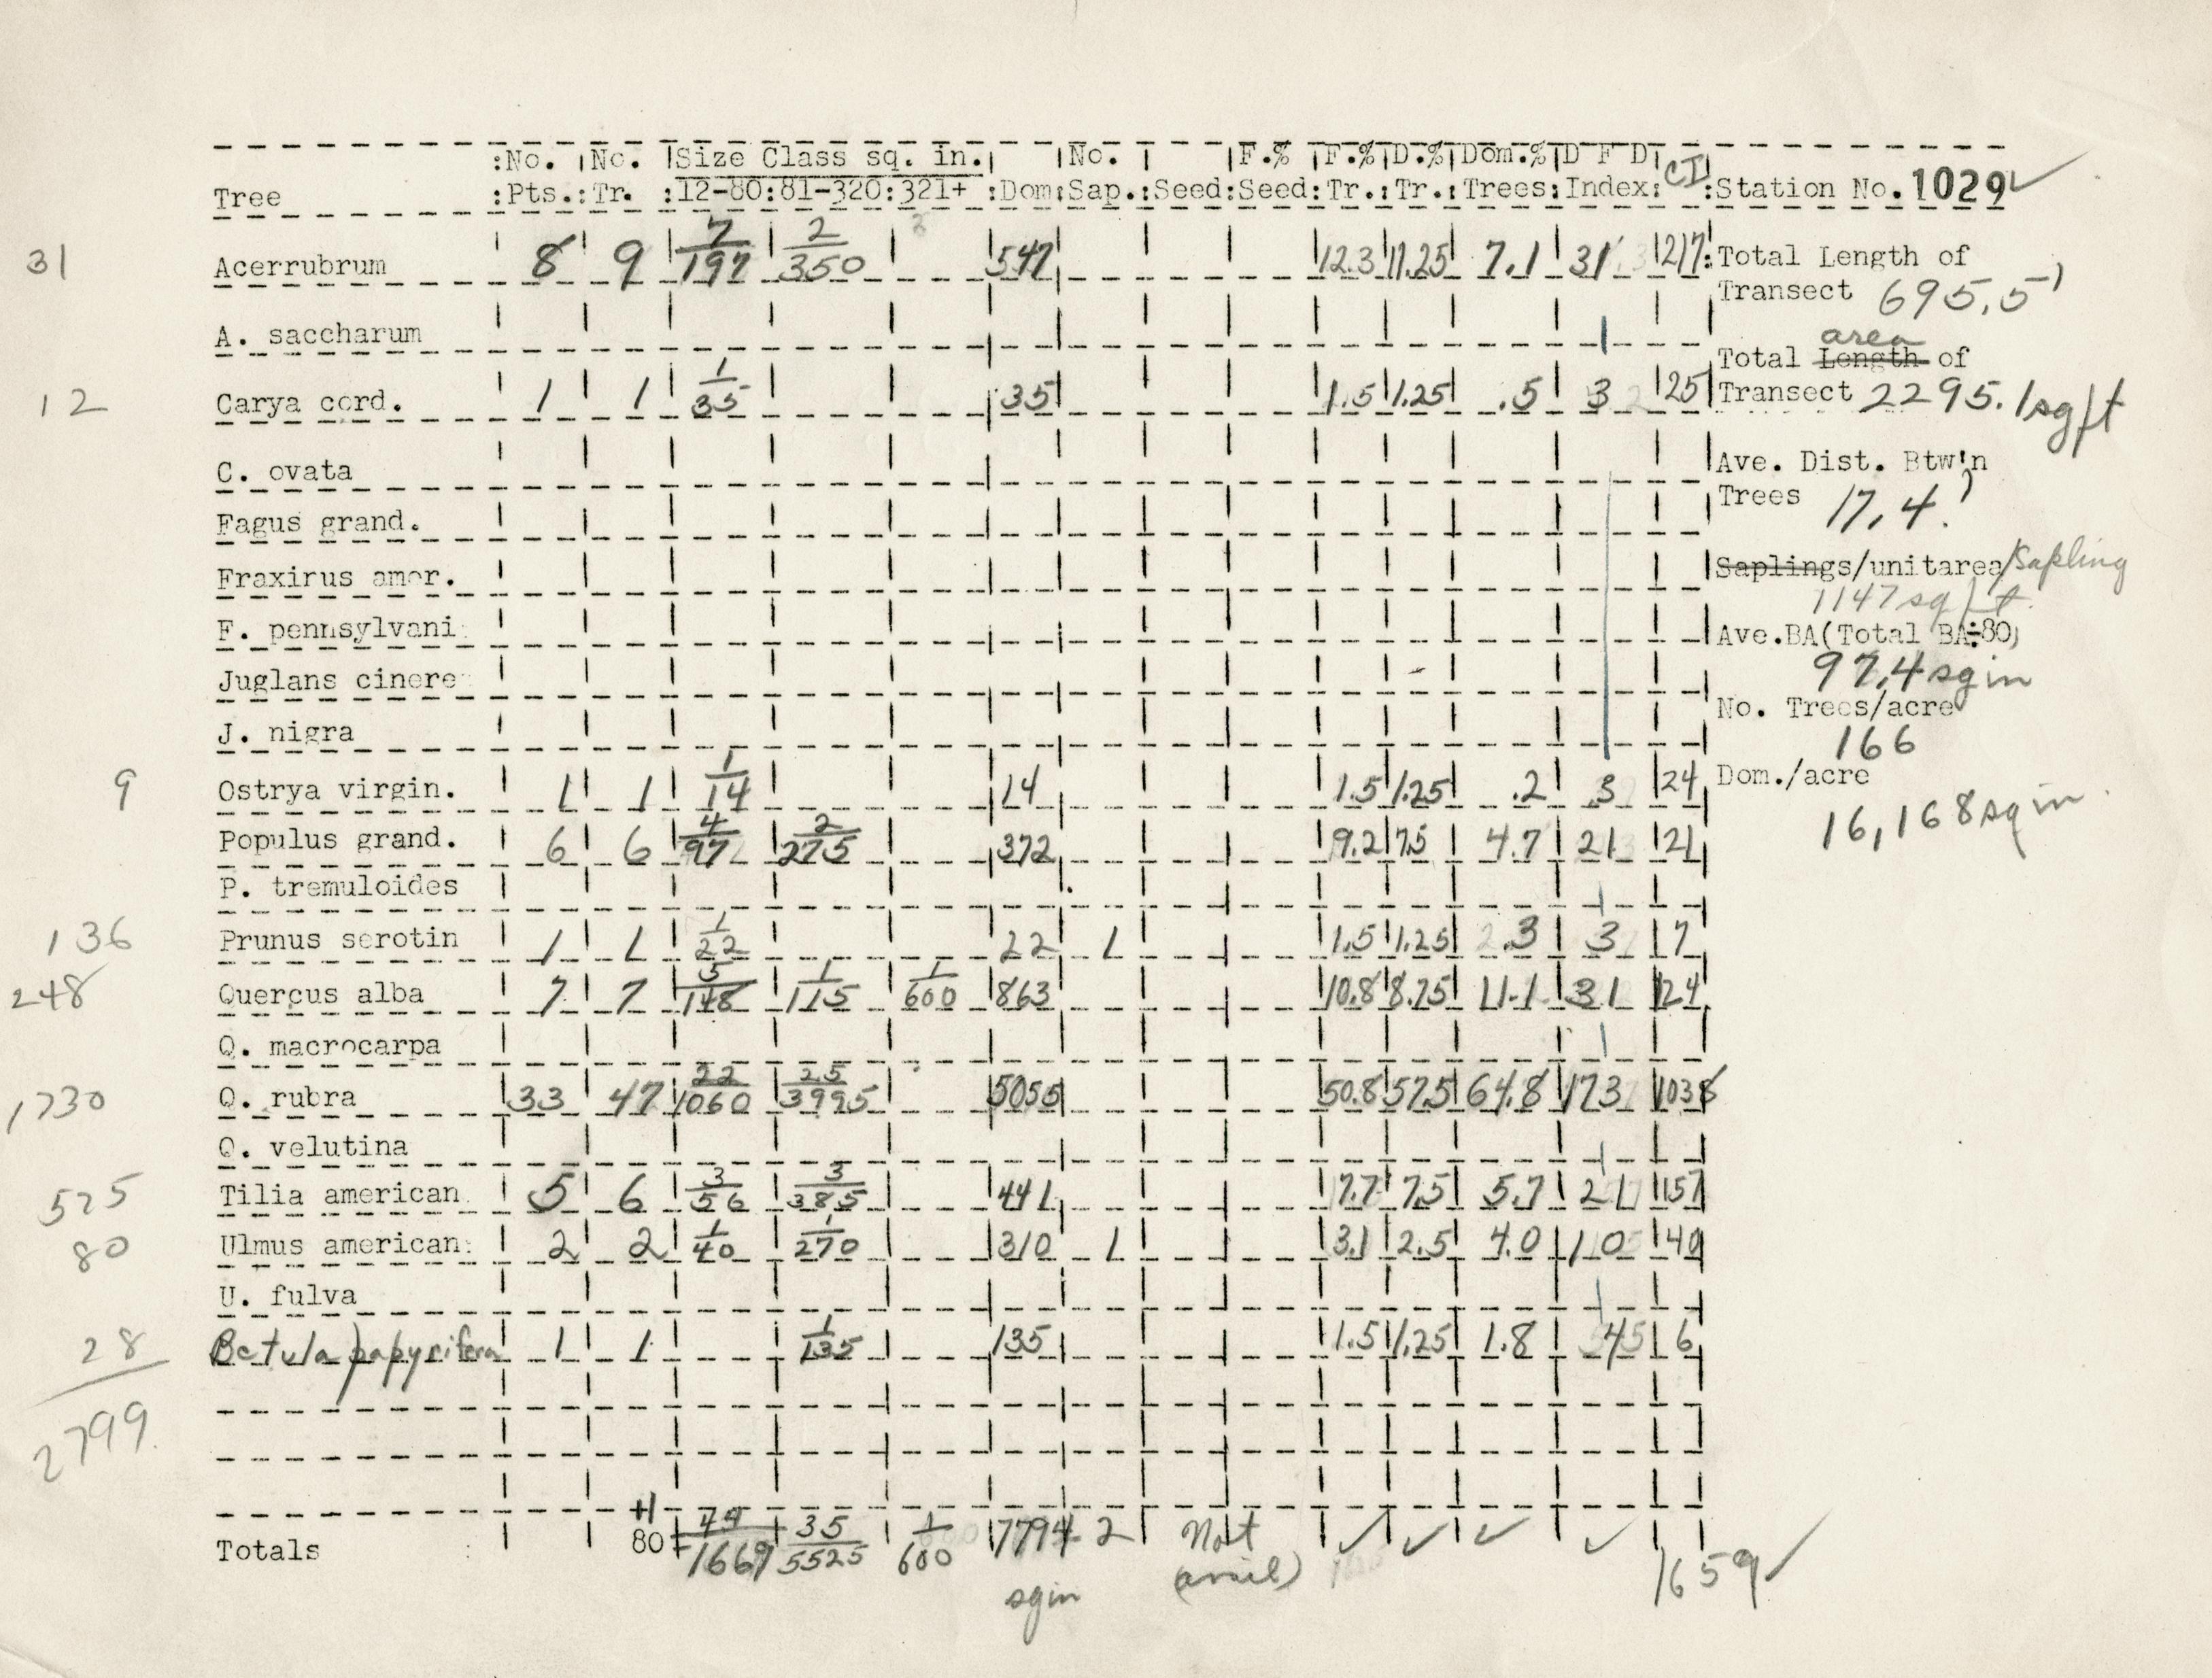 :No. No. Size Class sq. in. No. F.% F.% D.% Dom.% D F D CI
Tree :Pts.: Tr. :12-80:81-320:321+ :Dom: Sap.:Seed:Seed:Tr.:Tr.:Trees:Index: :Station No. 1029 ✓
31 Acerrubrum 8 9 7/197 2/350 547 12.3 11.25 7.1 31 217 Total Length of
Transect 695.5'
A. saccharum
area
Total Length of
12 Carya cord. 1 1 1/35 35 1.5 1.25 .5 3 25 Transect 2295.1 sq ft
C. ovata Ave. Dist. Btw'n
Trees 17.4'
Fagus grand.
Fraxirus amer. Saplings/unitarea/sapling
1147 sq ft.
F. pennsylvani Ave.BA(Total BA÷80)
Juglans cinere 97.4 sq in
J. nigra No. Trees/acre
166
9 Ostrya virgin. 1 1 1/14 14 1.5 1.25 .2 3 24 Dom./acre
16,168 sq in.
Populus grand. 6 6 4/97 2/275 372 9.2 7.5 4.7 21 21
P. tremuloides
136 Prunus serotin 1 1 1/22 22 1 1.5 1.25 .3 3 7
248 Quercus alba 7 7 5/148 1/115 1/600 863 10.8 8.75 11.1 31 124
Q. macrocarpa
1730 Q. rubra 33 47 22/1060 25/3995 5055 50.8 57.5 64.8 173 1038
Q. velutina
525 Tilia american 5 6 3/56 3/385 441 7.7 7.5 5.7 21 157
80 Ulmus american 2 2 1/40 1/270 310 1 3.1 2.5 4.0 10 40
U. fulva
28 Betula papyrifera 1 1 1/135 135 1.5 1.25 1.8 45 6
2799
+1
Totals 80 44/1669 35/5525 1/600 7794 2 Not ✓ ✓ ✓ ✓ 1659 ✓
sq in (avail)